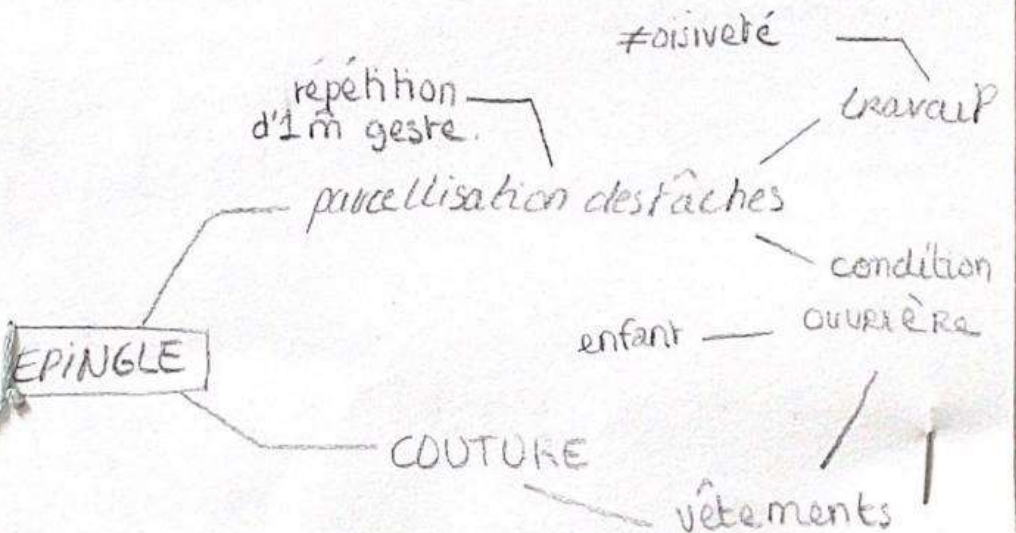 ≠oisiveté
travail
répétition
d'1 m̂ geste.
parcellisation des tâches
condition
OUVRIÈRe
enfant
EPiNGLE
COUTURE
vêtements